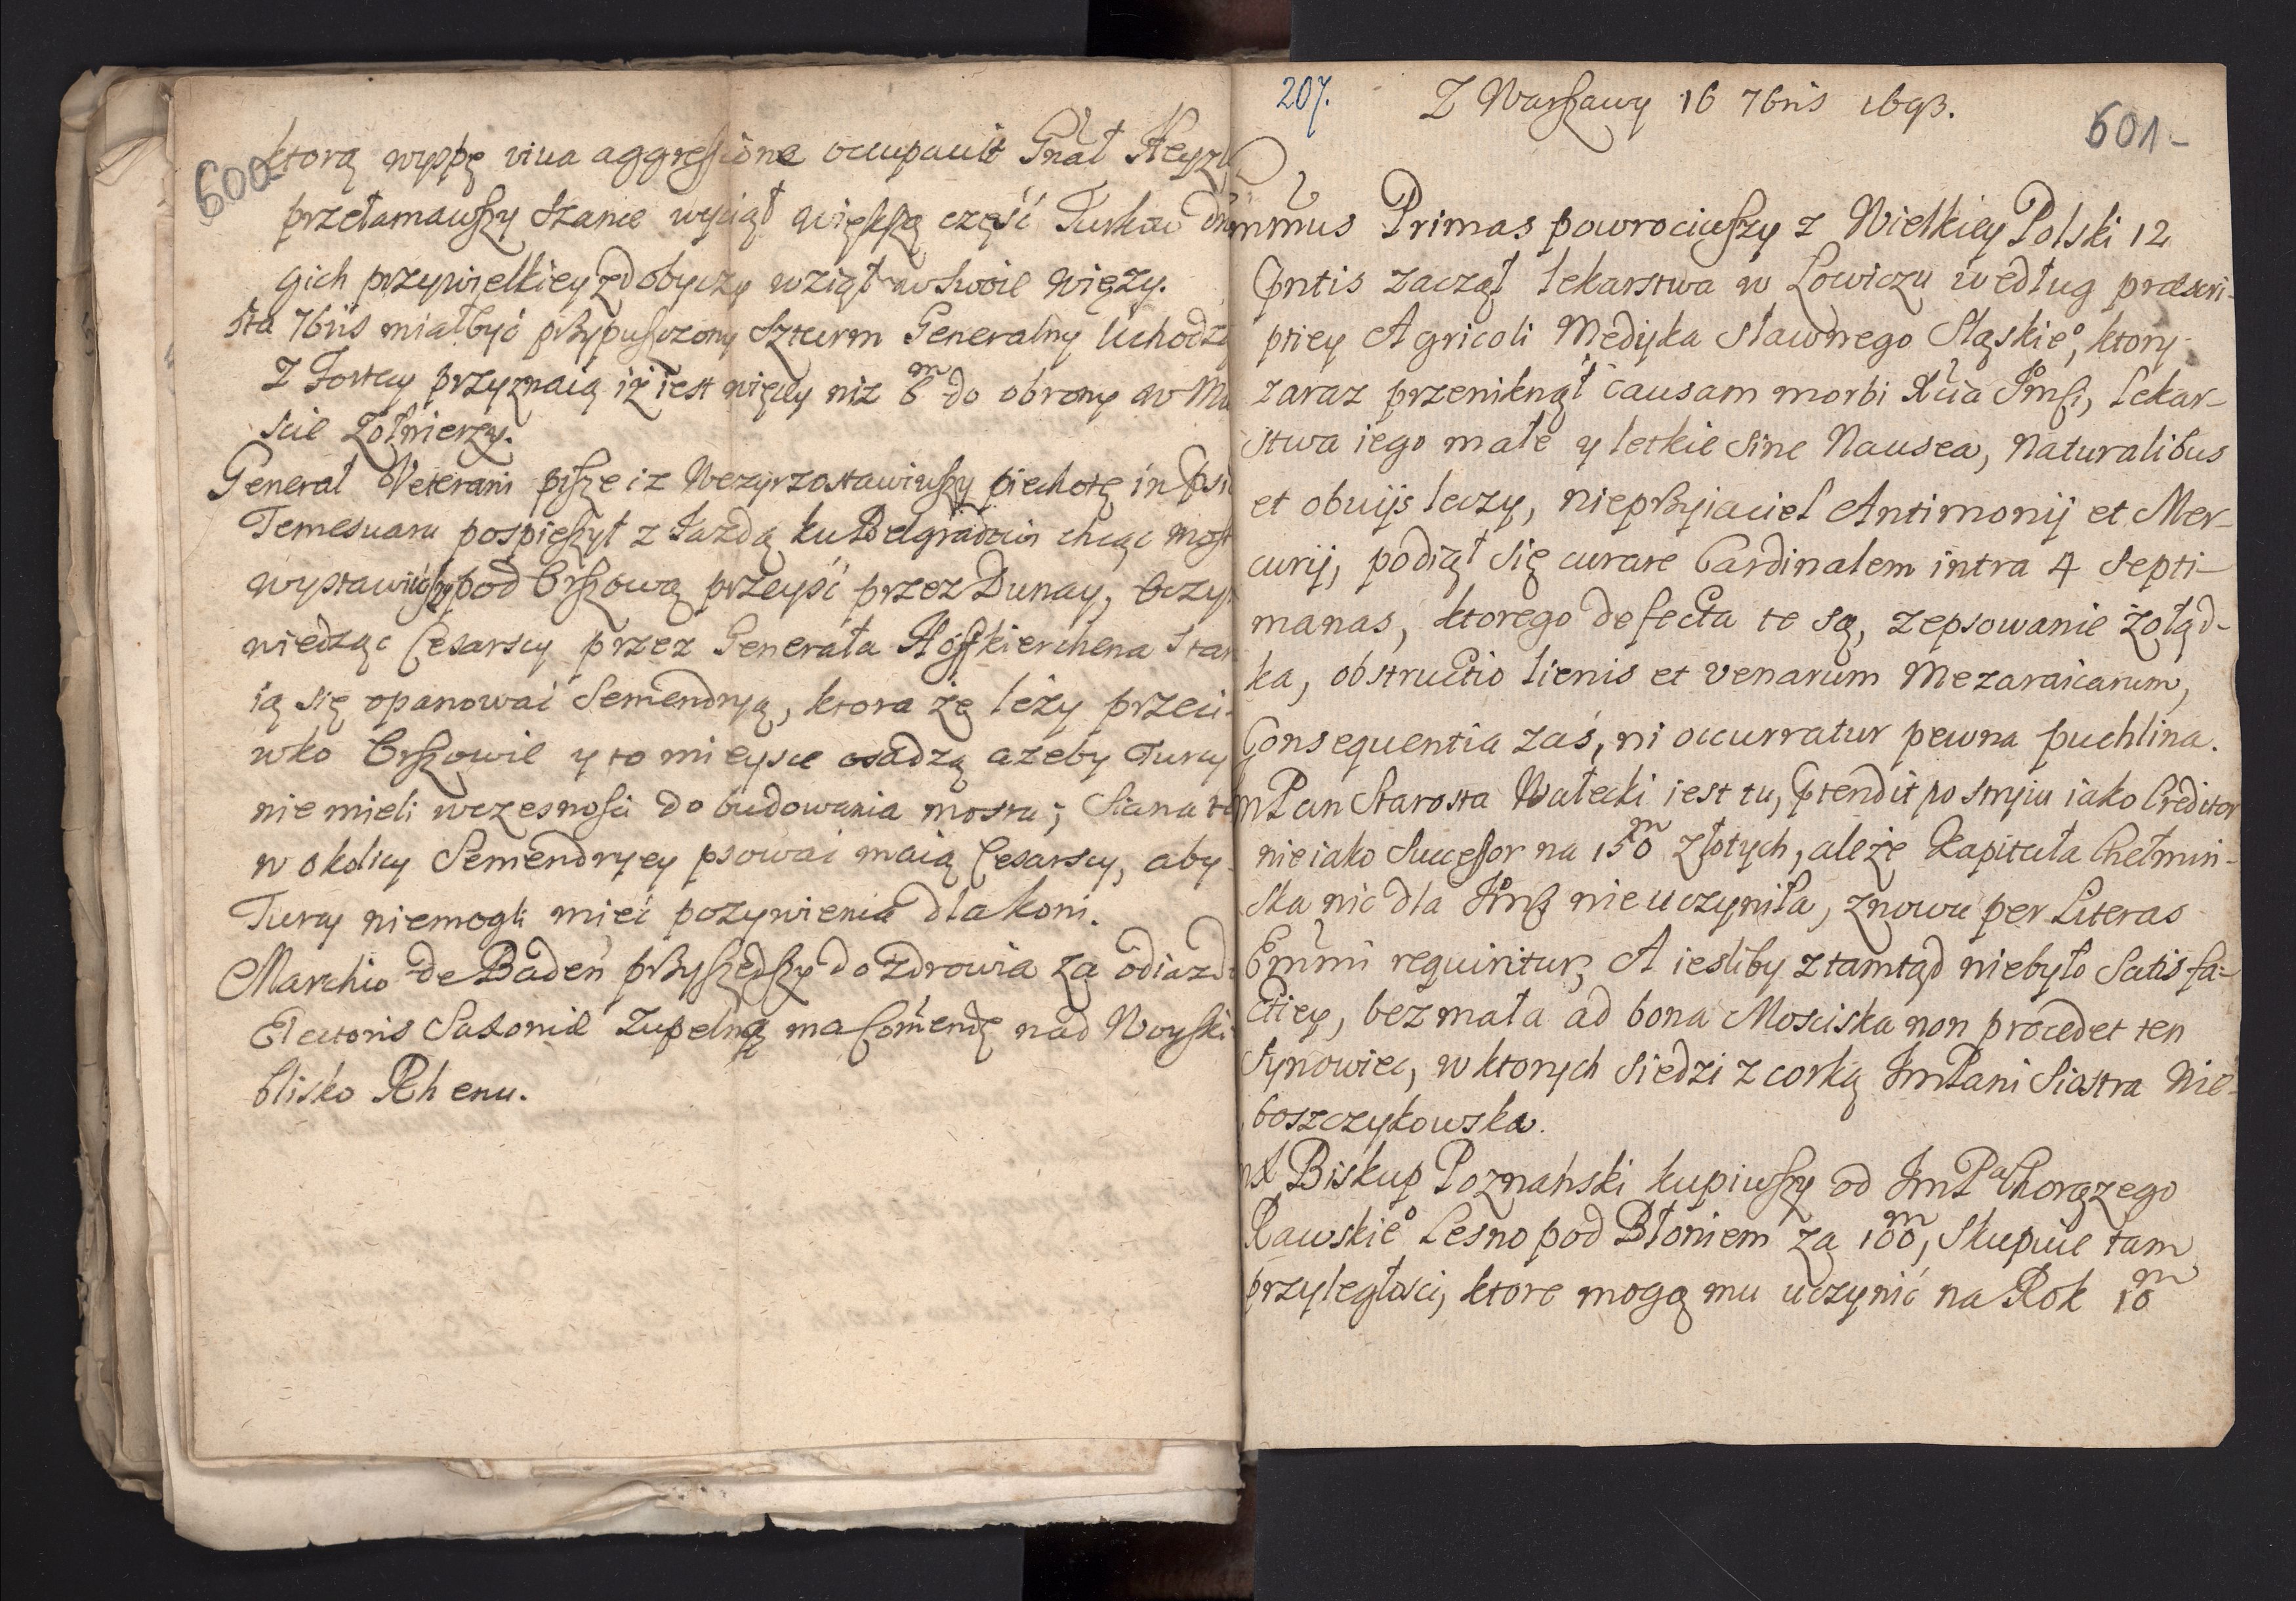 600
ktorą wyspę viua aggressione occupauit Gnał Heyzl
przełamawszy Szance wyciął większą część Turkow dru
gich przy wielkiey zdobyczy wziął w swoie więzy.
7bris miał być przypuszczony Szturm Generalny Uchodz
Z Fortecy przyznaią iż iest więcey niz 6m do obrony w Mie
scie Zołnierzy.
Generał Veterani pisze iz Wezyr zostawiwszy piechotę in
Temesuaru pospieszył z Iazdą ku Belgradowi chcąc most
wystawiwszy pod Orszową przeyść przez Dunay, Oczym
wiedząc Cesarscy przez Generała Hoffkierchena star
ią się opanować Semendryą, ktora ze leży przeci-
wko Orszowie y to mieysce osadzą azeby Turcy
nie mieli wczesnosci do budowania mostu; Siana
w okolicy Semendryey psować maią Cesarscy, aby
Turcy niemogli mieć pozywienia dla koni.
Marchio de Baden przyszedszy do zdrowia za odiazd
Electoris Saxoniae Zupelną ma Com̃endę nad Woyski
blisko Rhenu.
207. Z Warszawy 16 7bris 1693.
601-
m̃mus Primas powrociwszy z Wielkiey Polski 12
Pntis zaczął lekarstwa w Lowiczu według praescri-
ptiey Agricoli Medyka sławnego Sląskieo, ktory
zaraz przeniknął causam morbi Xcia Jmsi, Lekar-
stwa iego małe y letkie sine Nausea, Naturalibus
et obuijs leczy, nieprzyiaciel Antimonij et Mer-
curij, podiął się curare Cardinalem intra 4 septi-
manas, ktorego defecta te są, zepsowanie żołąd-
ka, obstructio lienis et venarum Mezaraicarum,
Consequentia zaś, ni occurratur pewna puchlina.
mPan Starosta Wałecki iest tu, Ptendit po stryiu iako Creditor
nie iako Successor na 150m złotych, ale że Kapituła Chełmin-
ska nic dla Jms nie uczyniła, znowu per Literas
Em̃mi requiritur, A iesliby ztamtąd niebyło Satisfa-
ctiey, bezmała ad bona Mosciska non procedet ten
Synowiec, w ktorych siedzi z corką JmPani Siostra Nie-
boszczykowska.
mX Biskup Poznański kupiwszy od JmPa Chorązego
Rawskieo Lesno pod Błoniem za 100m, Skupuie tam
przyległosci, ktore mogą mu uczynić na Rok 10m